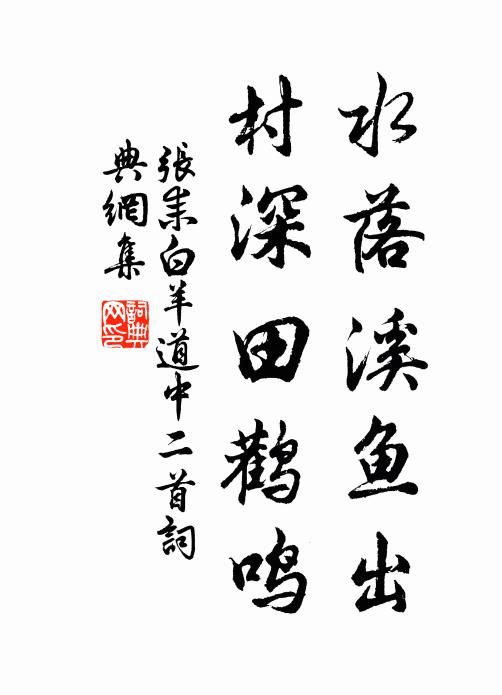 水落溪鱼出
村深田鹳鸣
張耒白羊道中二首詞
典網集
詞典
网印